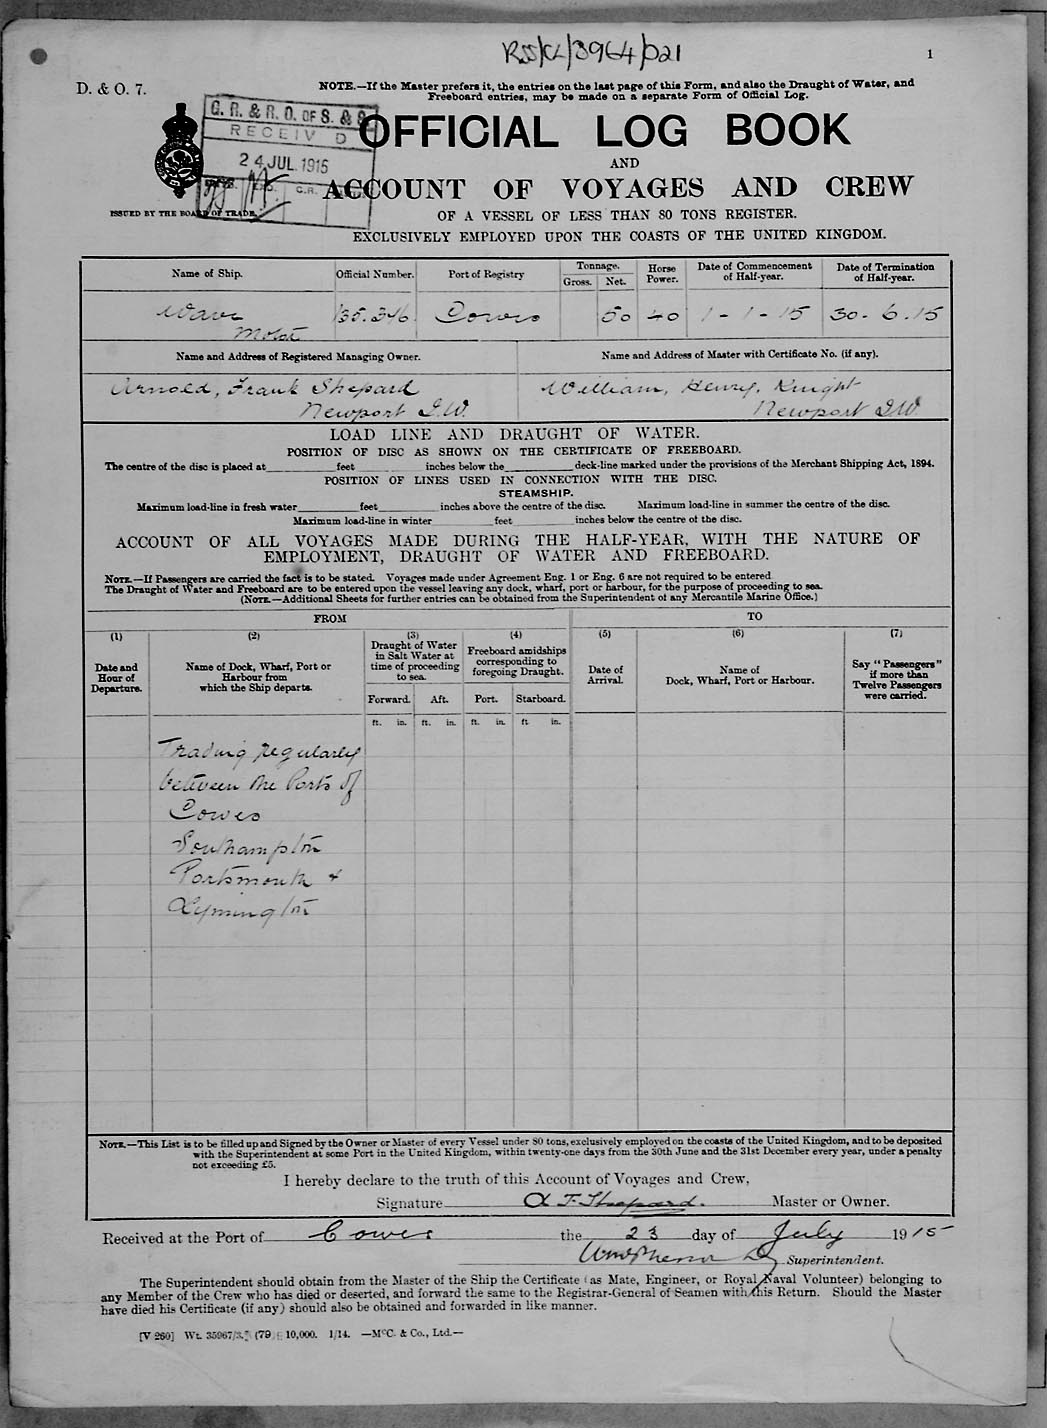 RSS/CL/3964/021
1
D. & O. 7.
NOTE.—If the Master prefers it, the entries on the last page of this Form, and also the Draught of Water, and
Freeboard entries, may be made on a separate Form of Official Log.
G. R. & R. O. OF S. & S.
RECEIV D
24 JUL. 1915
C.R.
OFFICIAL LOG BOOK
AND
ACCOUNT OF VOYAGES AND CREW
ISSUED BY THE BOARD OF TRADE.
OF A VESSEL OF LESS THAN 80 TONS REGISTER.
EXCLUSIVELY EMPLOYED UPON THE COASTS OF THE UNITED KINGDOM.
Name of Ship. Official Number. Port of Registry Tonnage. Gross. Net. Horse Power. Date of Commencement of Half-year. Date of Termination of Half-year.
Wave 135.346 Cowes 50 40 1-1-15 30.6.15
Motor
Name and Address of Registered Managing Owner. Name and Address of Master with Certificate No. (if any).
Arnold, Frank Shepard William, Henry, Knight
Newport I.W. Newport I.W.
LOAD LINE AND DRAUGHT OF WATER.
POSITION OF DISC AS SHOWN ON THE CERTIFICATE OF FREEBOARD.
The centre of the disc is placed at feet inches below the deck-line marked under the provisions of the Merchant Shipping Act, 1894.
POSITION OF LINES USED IN CONNECTION WITH THE DISC.
STEAMSHIP.
Maximum load-line in fresh water feet inches above the centre of the disc. Maximum load-line in summer the centre of the disc.
Maximum load-line in winter feet inches below the centre of the disc.
ACCOUNT OF ALL VOYAGES MADE DURING THE HALF-YEAR, WITH THE NATURE OF
EMPLOYMENT, DRAUGHT OF WATER AND FREEBOARD.
NOTE.—If Passengers are carried the fact is to be stated. Voyages made under Agreement Eng. 1 or Eng. 6 are not required to be entered
The Draught of Water and Freeboard are to be entered upon the vessel leaving any dock, wharf, port or harbour, for the purpose of proceeding to sea.
(NOTE.—Additional Sheets for further entries can be obtained from the Superintendent of any Mercantile Marine Office.)
FROM TO
(1) (2) (3) (4) (5) (6) (7)
Date and Hour of Departure.
Name of Dock, Wharf, Port or Harbour from which the Ship departs.
Draught of Water in Salt Water at time of proceeding to sea.
Freeboard amidships corresponding to foregoing Draught.
Date of Arrival.
Name of Dock, Wharf, Port or Harbour.
Say "Passengers" if more than Twelve Passengers were carried.
Forward. Aft. Port. Starboard.
ft. in. ft. in. ft. in. ft in.
Trading regularly
between the Ports of
Cowes
Southampton
Portsmouth &
Lymington
NOTE.—This List is to be filled up and Signed by the Owner or Master of every Vessel under 80 tons, exclusively employed on the coasts of the United Kingdom, and to be deposited
with the Superintendent at some Port in the United Kingdom, within twenty-one days from the 30th June and the 31st December every year, under a penalty
not exceeding £5.
I hereby declare to the truth of this Account of Voyages and Crew,
Signature A F Shepard. Master or Owner.
Received at the Port of Cowes the 23 day of July 1915
Superintendent.
The Superintendent should obtain from the Master of the Ship the Certificate (as Mate, Engineer, or Royal Naval Volunteer) belonging to
any Member of the Crew who has died or deserted, and forward the same to the Registrar-General of Seamen with this Return. Should the Master
have died his Certificate (if any) should also be obtained and forwarded in like manner.
[V 260] Wt. 35967/3. (79 10,000. 1/14. —McC. & Co., Ltd.—